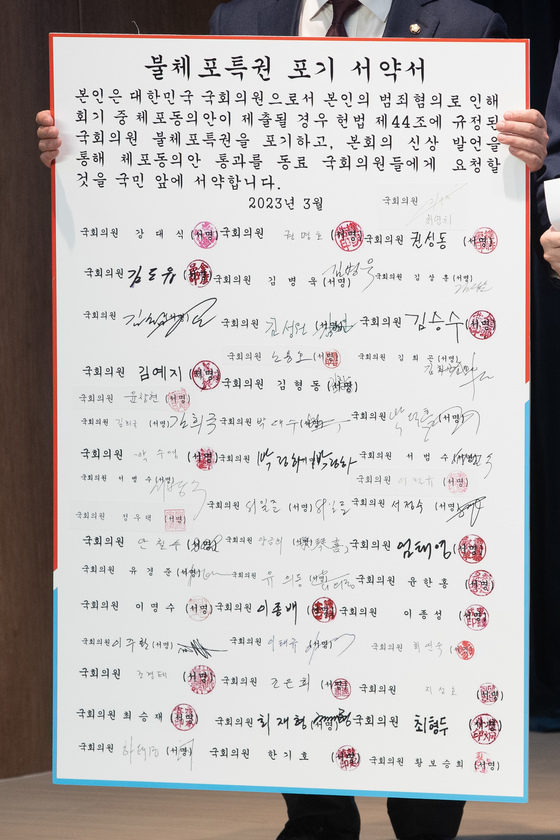 불체포특권 포기 서약서
본인은 대한민국 국회의원으로서 본인의 범죄혐의로 인해
회기 중 체포동의안이 제출될 경우 헌법 제44조에 규정된
국회의원 불체포특권을 포기하고, 본회의 신상 발언을
통해 체포동의안 통과를 동료 국회의원들에게 요청할
것을 국민 앞에 서약합니다.
2023년 3월
국회의원
국회의원 강대식 (서명) 국회의원 권명호 (서명) 국회의원 권성동 (서명)
국회의원 김도읍 (서명) 국회의원 김병욱 (서명) 김병욱 국회의원 김상훈 (서명)
국회의원 국회의원 김성원 (서명) 국회의원 김승수 (서명)
국회의원 김예지 (서명) 국회의원 노용호 (서명) 국회의원 김희곤 (서명)
국회의원 김형동 (서명)
국회의원 윤창현 (서명)
국회의원 (서명) 김희국 국회의원 박대수 (서명) 국회의원 (서명)
국회의원 박수영 (서명) 국회의원 박정하 (서명) 박정하 국회의원 서범수 (서명)
국회의원 서병수 (서명) 국회의원 (서명)
국회의원 정우택 (서명) 국회의원 서일준 (서명) 서일준 국회의원 서정숙 (서명)
국회의원 안철수 (서명) 국회의원 (서명) 국회의원 엄태영 (서명)
국회의원 유경준 (서명) 국회의원 유의동 (서명) 국회의원 윤한홍 (서명)
국회의원 이명수 (서명) 국회의원 이종배 (서명) 국회의원 이종성 (서명)
국회의원 이주환 (서명) 국회의원 이태규 (서명) 국회의원 최연숙 (서명)
국회의원 조경태 (서명) 국회의원 조은희 (서명) 국회의원 지성호 (서명)
국회의원 최승재 (서명) 국회의원 최재형 (서명) 국회의원 최형두 (서명)
국회의원 하태경 (서명) 국회의원 한기호 (서명) 국회의원 황보승희 (서명)